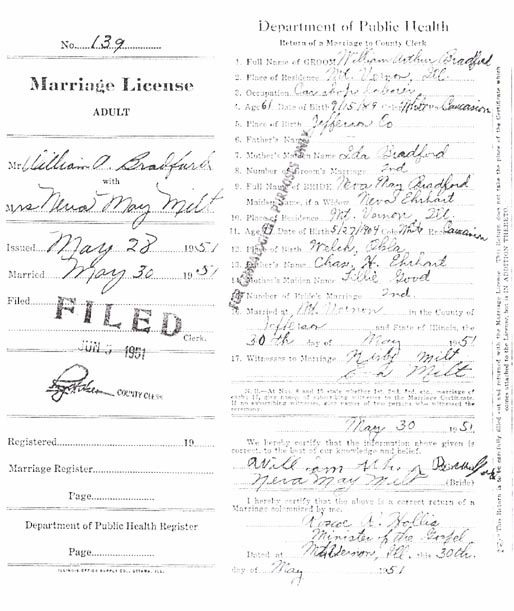 No. 139
Marriage License
ADULT
Mr. William A. Bradford
with
Mrs Neva May Milt
Issued May 28 1951
Married May 30 1951
Filed
FILED
Clerk.
JUN 5 1951
COUNTY CLERK
Registered 19
Marriage Register
Page
Department of Public Health Register
Page
ILLINOIS OFFICE SUPPLY CO., OTTAWA, ILL.
Department of Public Health
Return of a Marriage to County Clerk
1. Full Name of GROOM William Arthur Bradford
2. Place of Residence Mt. Vernon, Ill.
3. Occupation Car shops Laborer
4. Age 61 Date of Birth 9/15/89 Color White Caucasion
5. Place of Birth Jefferson Co
6. Father's Name
7. Mother's Maiden Name Ida Bradford
8. Number of Groom's Marriage 2nd
9. Full Name of BRIDE Neva May Bradford
Maiden Name, if a Widow Neva Ehrhart
10. Place of Residence Mt. Vernon, Ill
11. Age Date of Birth 5/27/1909 Color White Race Caucasion
12. Place of Birth Welch, Okla.
13. Father's Name Chas. H. Ehrhart
14. Mother's Maiden Name Tillie Good
15. Number of Bride's Marriage 2nd
16. Married at Mt Vernon in the County of
Jefferson and State of Illinois, the
30th day of May 1951
17. Witnesses to Marriage Milt
Milt
FOR GENEALOGICAL PURPOSES ONLY
N. B.—At Nos. 8 and 15 state whether 1st, 2nd, 3rd, etc., marriage of
each; 17, give names of subscribing witnesses to the Marriage Certificate.
If no subscribing witnesses, give names of two persons who witnessed the
ceremony.
May 30 1951
We hereby certify that the information above given is
correct, to the best of our knowledge and belief.
William
Neva May Milt (Bride)
I hereby certify that the above is a correct return of a
Marriage solemnized by me.
Roscoe Hollis
Minister of the Gospel
Dated at Mt Vernon, Ill. this 30th
day of May 1951
This Return is to be carefully filled out and returned with the Marriage License. This Return does not take the place of the Certificate which
comes attached to the License, but is IN ADDITION THERETO.